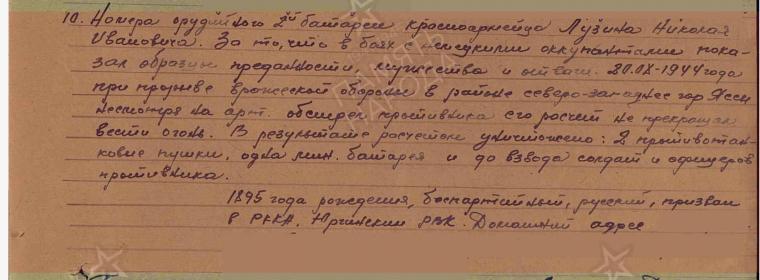 10. Номера орудийного 2ой батареи красноармейца Лузина Николая
Ивановича. За то, что в боях с немецкими оккупантами пока-
зал образцы преданности, мужества и отваги. 20.IX-1944 года
при прорыве вражеской обороны в районе северо-западнее гор Яссы
несмотря на арт. обстрел противника его росчет не прекращал
вести огонь. В результате росчетом уничтожено: 2 противотан-
ковие пушки, одна мин. батарея и до взвода солдат и офицеров
противника.
1895 года рождения, беспартийный, русский, призван
в РККА. Юргинским РВК. Домашний адрес
ПАМЯТЬ
НАРОДА